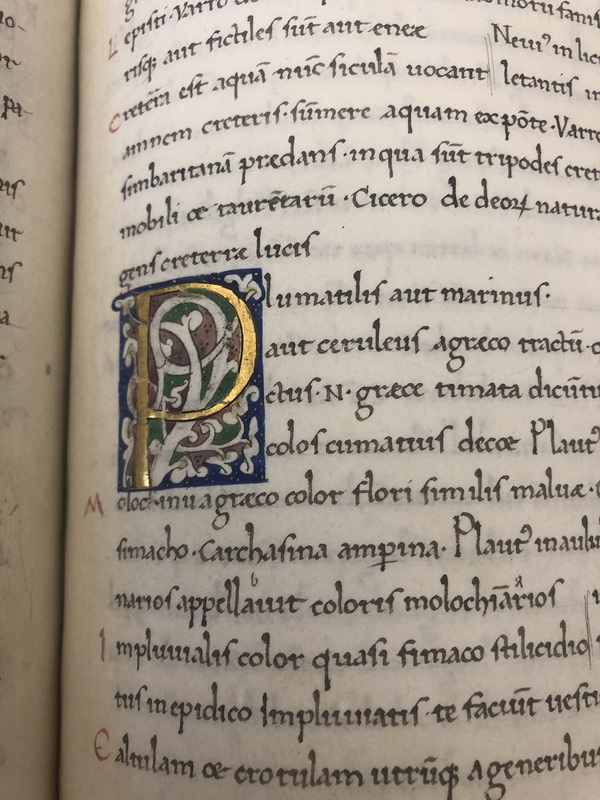 episti. Varro
risq; aut fictiles sūt aut eneæ
Creterra est aquā nūc siculā uocant
amnem creteris. sūmere aquam ex pōte. Varro
simbaritanā predans. in qua sūt tripodes cret
mobili & taurētarū. Cicero de deoꝝ natur
gens creterræ lucis
Plumatilis aut marinus.
aut ceruleus agræco tractū. c
ctus. N. græce timata dicūtu
colos cumatius decoe Plautꝰ
Molochinu agræco color flori similis maluæ. C
simacho. Carchasina amꝑina. Plautꝰ in aulul
narios appellauit coloris molochiāriōs
Impluuialis color quasi fimaco stilicidio
tus in epidico Impluuiatis. te faciūt uesti
Caltulam & crotulam utrūq; ageneribus
Neuiꝰ in lic
letantis in